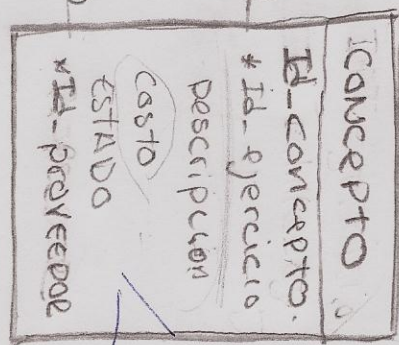 CONCEPTO
Id_concepto.
*Id_ejercicio
Descripcion
Costo
ESTADO
*Id_PROVEEDOR